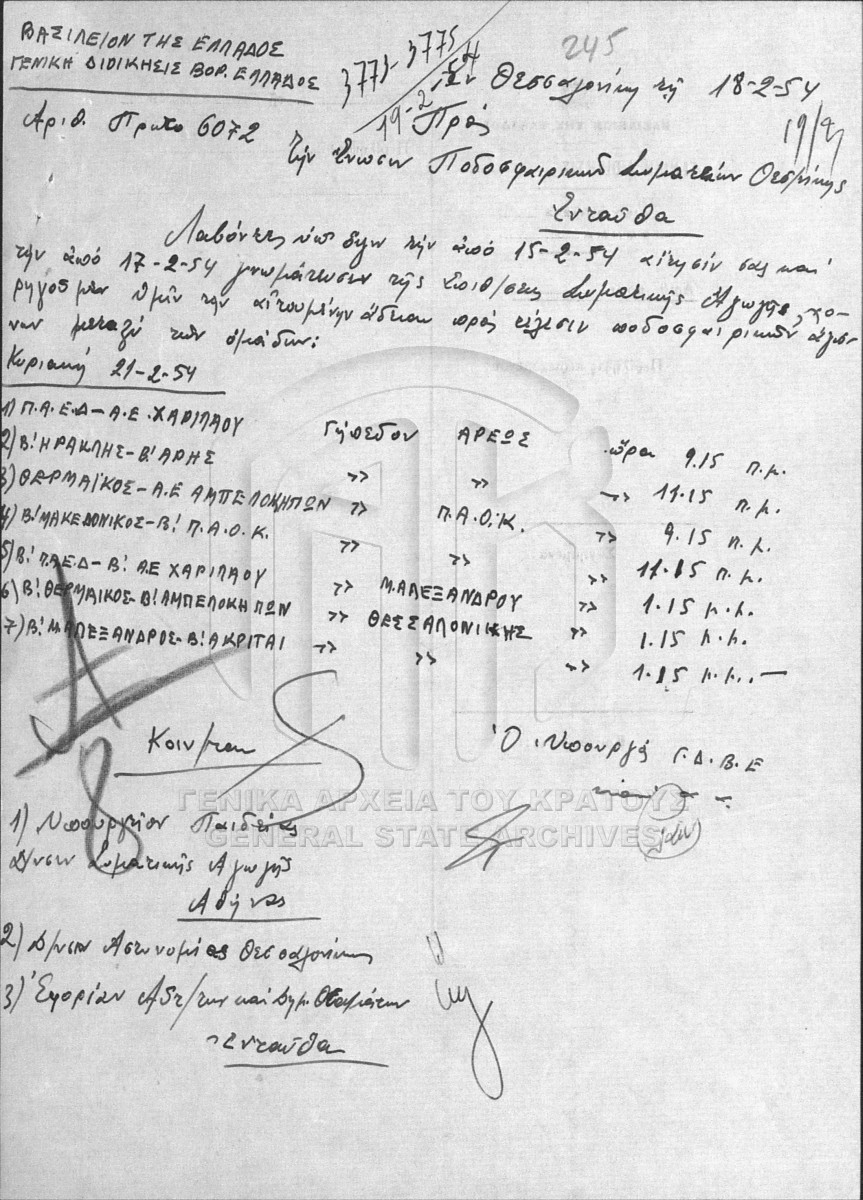 ΒΑΣΙΛΕΙΟΝ ΤΗΣ ΕΛΛΑΔΟΣ
ΓΕΝΙΚΗ ΔΙΟΙΚΗΣΙΣ ΒΟΡ. ΕΛΛΑΔΟΣ
3773-3775
19-2-54
245
Ἐν Θεσσαλονίκη τῇ 18-2-54
Αριθ. Πρωτο 6072
Πρός
19/2
τήν Ἕνωσιν Ποδοσφαιρικῶν Σωματείων Θεσ/νίκης
Ἐνταῦθα
Λαβόντες ὑπ' ὄψιν τήν ἀπό 15-2-54 αἴτησίν σας καί
τήν ἀπό 17-2-54 γνωμάτευσιν τῆς Ἐπιθ/σεως Σωματικῆς Ἀγωγῆς, χο-
ρηγοῦμεν ὑμῖν τήν αἰτουμένην ἄδειαν πρός τέλεσιν ποδοσφαιρικῶν ἀγώ-
νων μεταξύ τῶν ὁμάδων:
Κυριακή 21-2-54
1) Π.Α.Ε.Δ - Α.Ε. ΧΑΡΙΛΑΟΥ Γήπεδον ΑΡΕΩΣ ὥρα 9.15 π.μ.
2) Β! ΗΡΑΚΛΗΣ - Β! ΑΡΗΣ >> >> >> 11.15 π.μ.
3) ΘΕΡΜΑΪΚΟΣ - Α.Ε ΑΜΠΕΛΟΚΗΠΩΝ >> Π.Α.Ο.Κ. >> 9.15 π.μ.
4) Β! ΜΑΚΕΔΟΝΙΚΟΣ - Β! Π.Α.Ο.Κ. >> >> >> 11.15 π.μ.
5) Β! Π.Α.Ε.Δ - Β! Α.Ε ΧΑΡΙΛΑΟΥ >> Μ. ΑΛΕΞΑΝΔΡΟΥ >> 1.15 μ.μ.
6) Β! ΘΕΡΜΑΙΚΟΣ - Β! ΑΜΠΕΛΟΚΗΠΩΝ >> ΘΕΣΣΑΛΟΝΙΚΗΣ >> 1.15 μ.μ.
7) Β! Μ. ΑΛΕΞΑΝΔΡΟΣ - Β! ΑΚΡΙΤΑΙ >> >> >> 1.15 μ.μ. —
Κοιν/ται
Ὁ Ὑπουργός Γ.Δ.Β.Ε
ΓΕΝΙΚΑ ΑΡΧΕΙΑ ΤΟΥ ΚΡΑΤΟΥΣ
GENERAL STATE ARCHIVES
1) Ὑπουργεῖον Παιδείας
Δ/νσιν Σωματικῆς Ἀγωγῆς
Ἀθήνας
2) Δ/νσιν Ἀστυνομίας Θεσσαλονίκης
3) Ἐφορίαν Αδτ/των καί Δημ. Θεαμάτων
Ἐνταῦθα